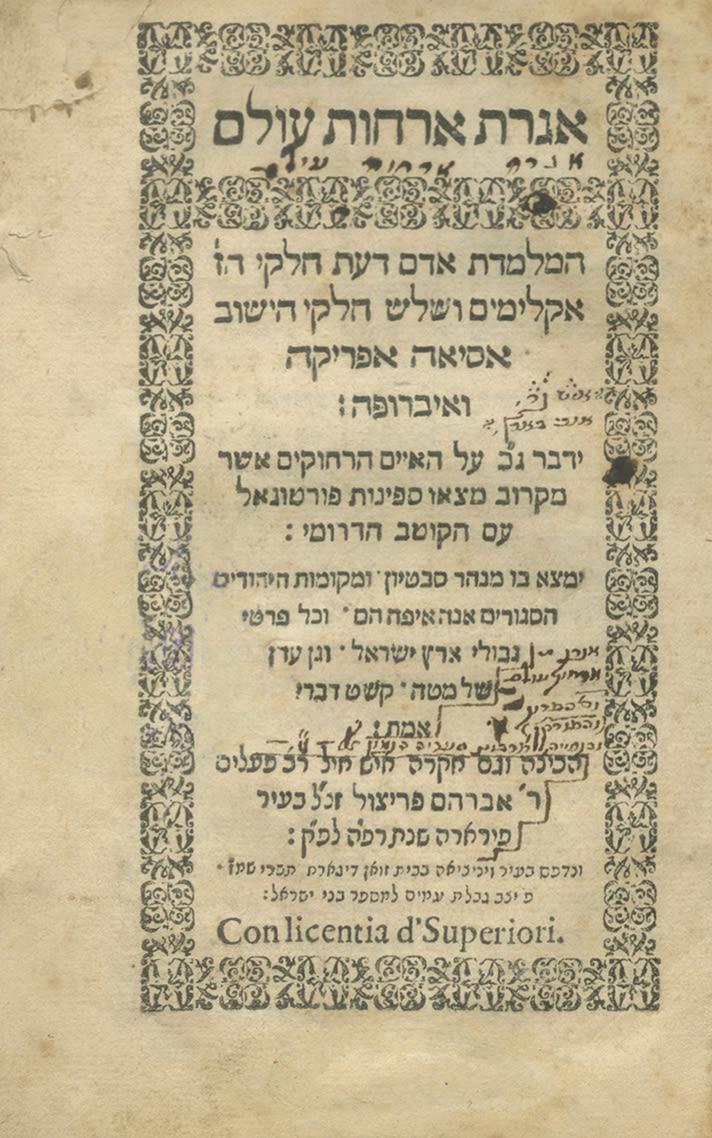 אגרת ארחות עולם
אגרת ארחות עולם
המלמדת אדם דעת חלקי הז׳
אקלימים ושלש חלקי הישוב
אסיאה אפריקה
ואיברופה :
ידבר ג״כ על האיים הרחוקים אשר
מקרוב מצאו ספינות פורטוגאל
עם הקוטב הדרומי :
ימצא בו מנהר סבטיון · ומקומות היהודים
הסגורים אנה איפה הם · וכל פרטי
גבולי ארץ ישראל · וגן עדן
של מטה · קשט דברי
אמת :
הכינה וגם חקרה איש חיל רב פעלים
ר׳ אברהם פריצול ז״ל בעיר
פירארה שנת רפ״ה לפ״ק :
ונדפס בעיר ויניציאה בבית זואן דיגארה תשרי שמ״ז ·
יצב גבלת עמים למספר בני ישראל :
Con licentia d'Superiori.